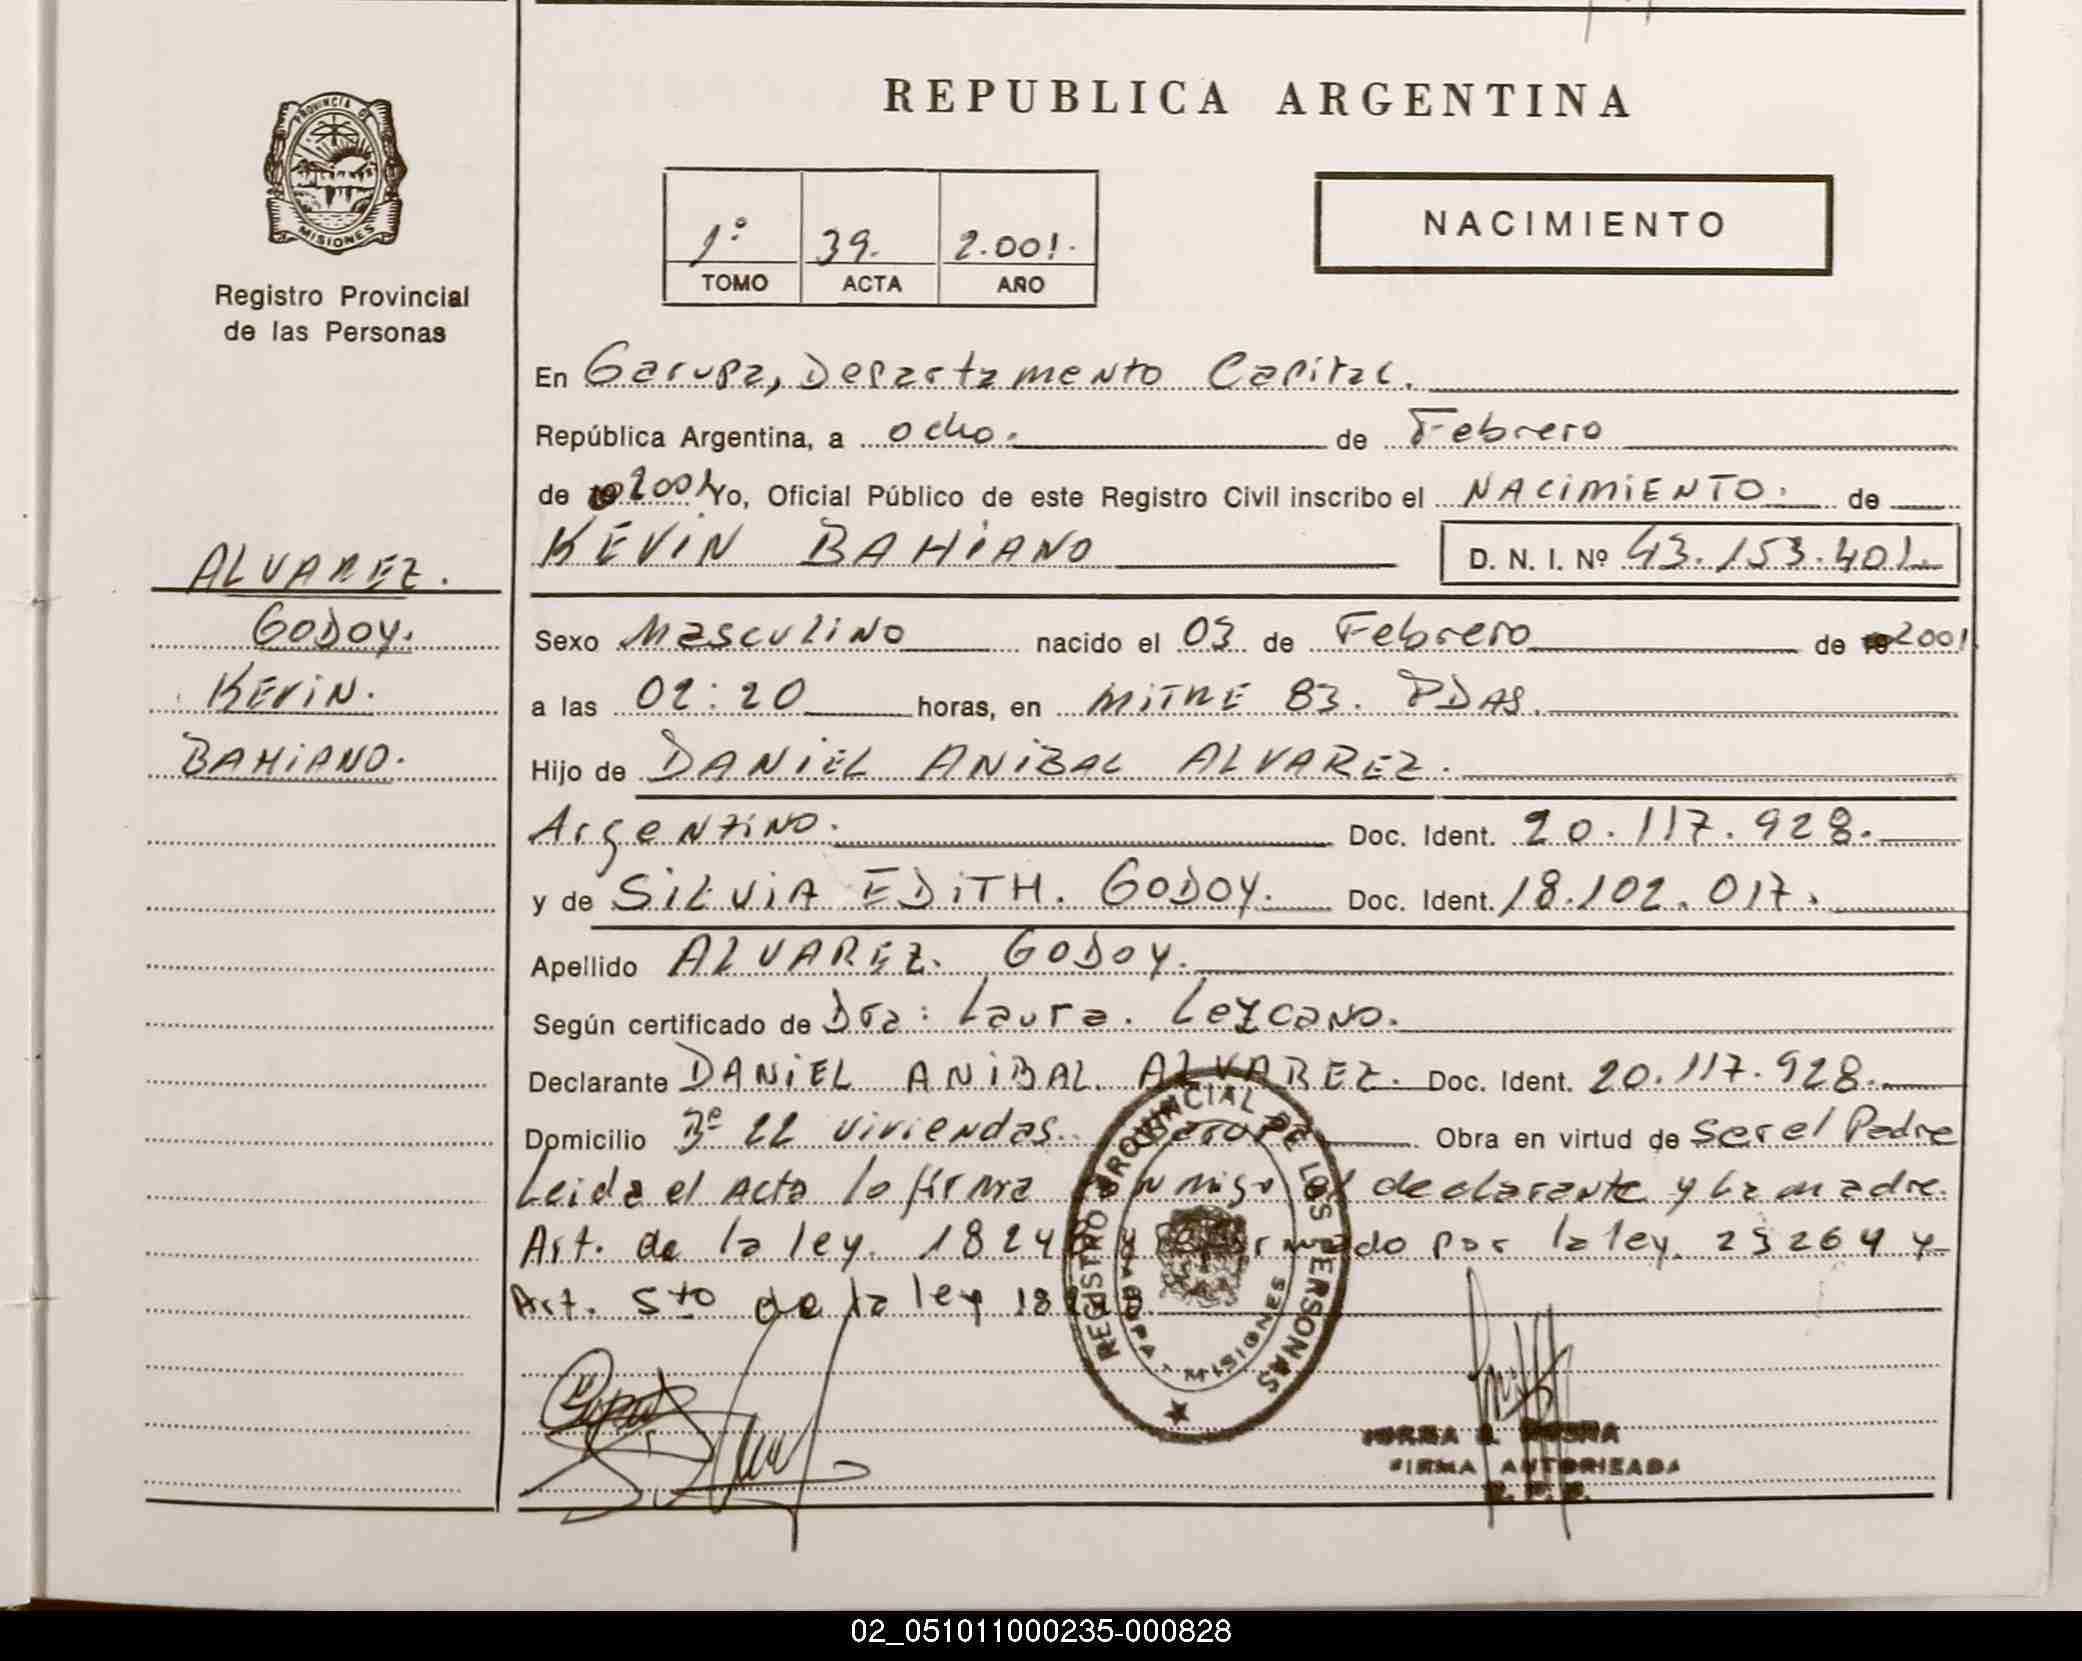 REPUBLICA ARGENTINA
PROVINCIA DE
MISIONES
Registro Provincial
de las Personas
1º 39. 2.001.
TOMO ACTA AÑO
NACIMIENTO
En Garupa, Departamento Capital.
República Argentina, a ocho. de Febrero
de 2001 Yo, Oficial Público de este Registro Civil inscribo el NACIMIENTO. de
KEVIN BAHIANO D. N. I. Nº 43.153.401.
ALVAREZ.
GODOY.
KEVIN.
BAHIANO.
Sexo Masculino nacido el 03 de Febrero de 2001
a las 02:20 horas, en MITRE 83. PDAS.
Hijo de DANIEL ANIBAL ALVAREZ.
Argentino. Doc. Ident. 20.117.928.
y de SILVIA EDITH. GODOY. Doc. Ident. 18.102.017.
Apellido ALVAREZ. GODOY.
Según certificado de Dra: Laura. Lezcano.
Declarante DANIEL ANIBAL. ALVAREZ. Doc. Ident. 20.117.928.
Domicilio Bº 22 viviendas. Garupa Obra en virtud de Ser el Padre
Leida el Acta la firma conmigo el declarante y la madre.
Art. de la ley. 18248 por la ley. 23264 y
Art. 5to de la ley 18248
REGISTRO PROVINCIAL DE LAS PERSONAS
GARUPA - MISIONES
FIRMA AUTORIZADA
R. P. P.
02_051011000235-000828